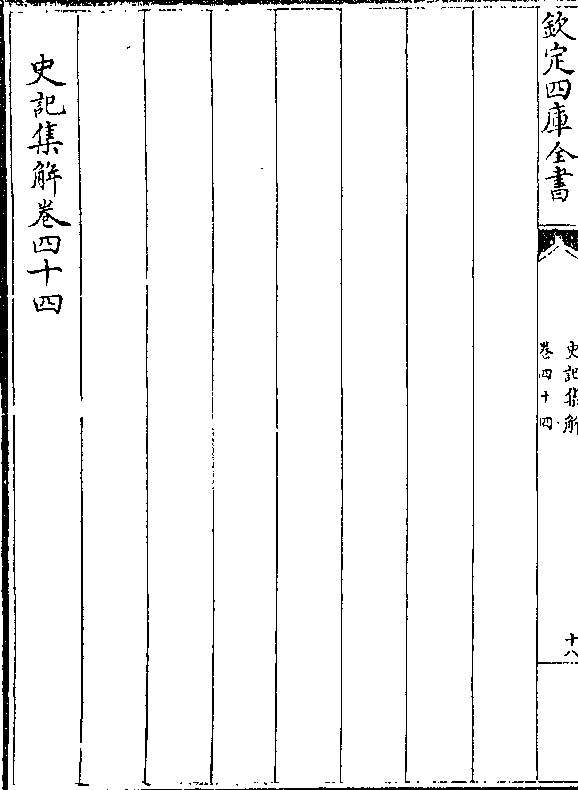 欽定四庫全書
史記集解
卷四十四
十八
史記集解卷四十四